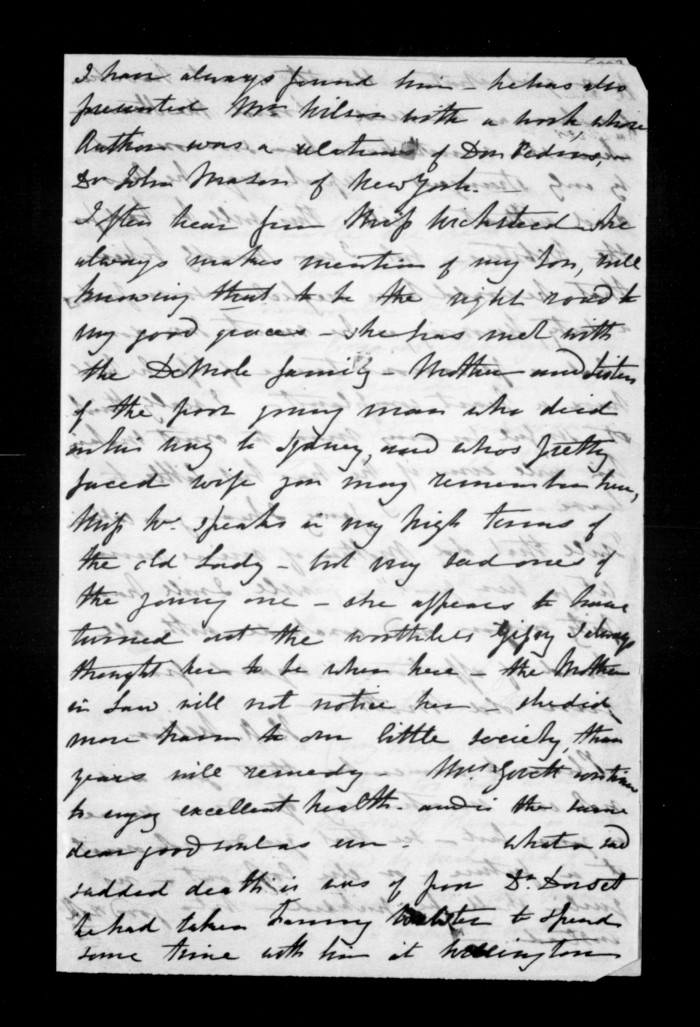 I have always found him - he has also
presented Mrs Wilson with a work whose
Author was a relation of Don Pedros,
Dr John Mason of New York.
I often hear from Miss Wicksteed she
always makes mention of my Son, well
knowing that to be the right road to
my good graces - she has met with
the DeMole family - Mother and Sisters
of the poor young man who died
on his way to Sydney, and whos pretty
faced wife you may remember here,
Miss W. speaks in very high terms of
the old Lady - but very bad ones of
the young one - she appears to have
turned out the worthless Gipsy I always
thought her to be when here - the Mother
in Law will not notice her - she did
more harm to our little society, than
years will remedy - Mrs continues
to enjoy excellent health - and is the same
dear good soul as ever - what a sad
sudded death is was of poor Dr. Dorset
he had taken Fanny to spend
some time with him at Wellington